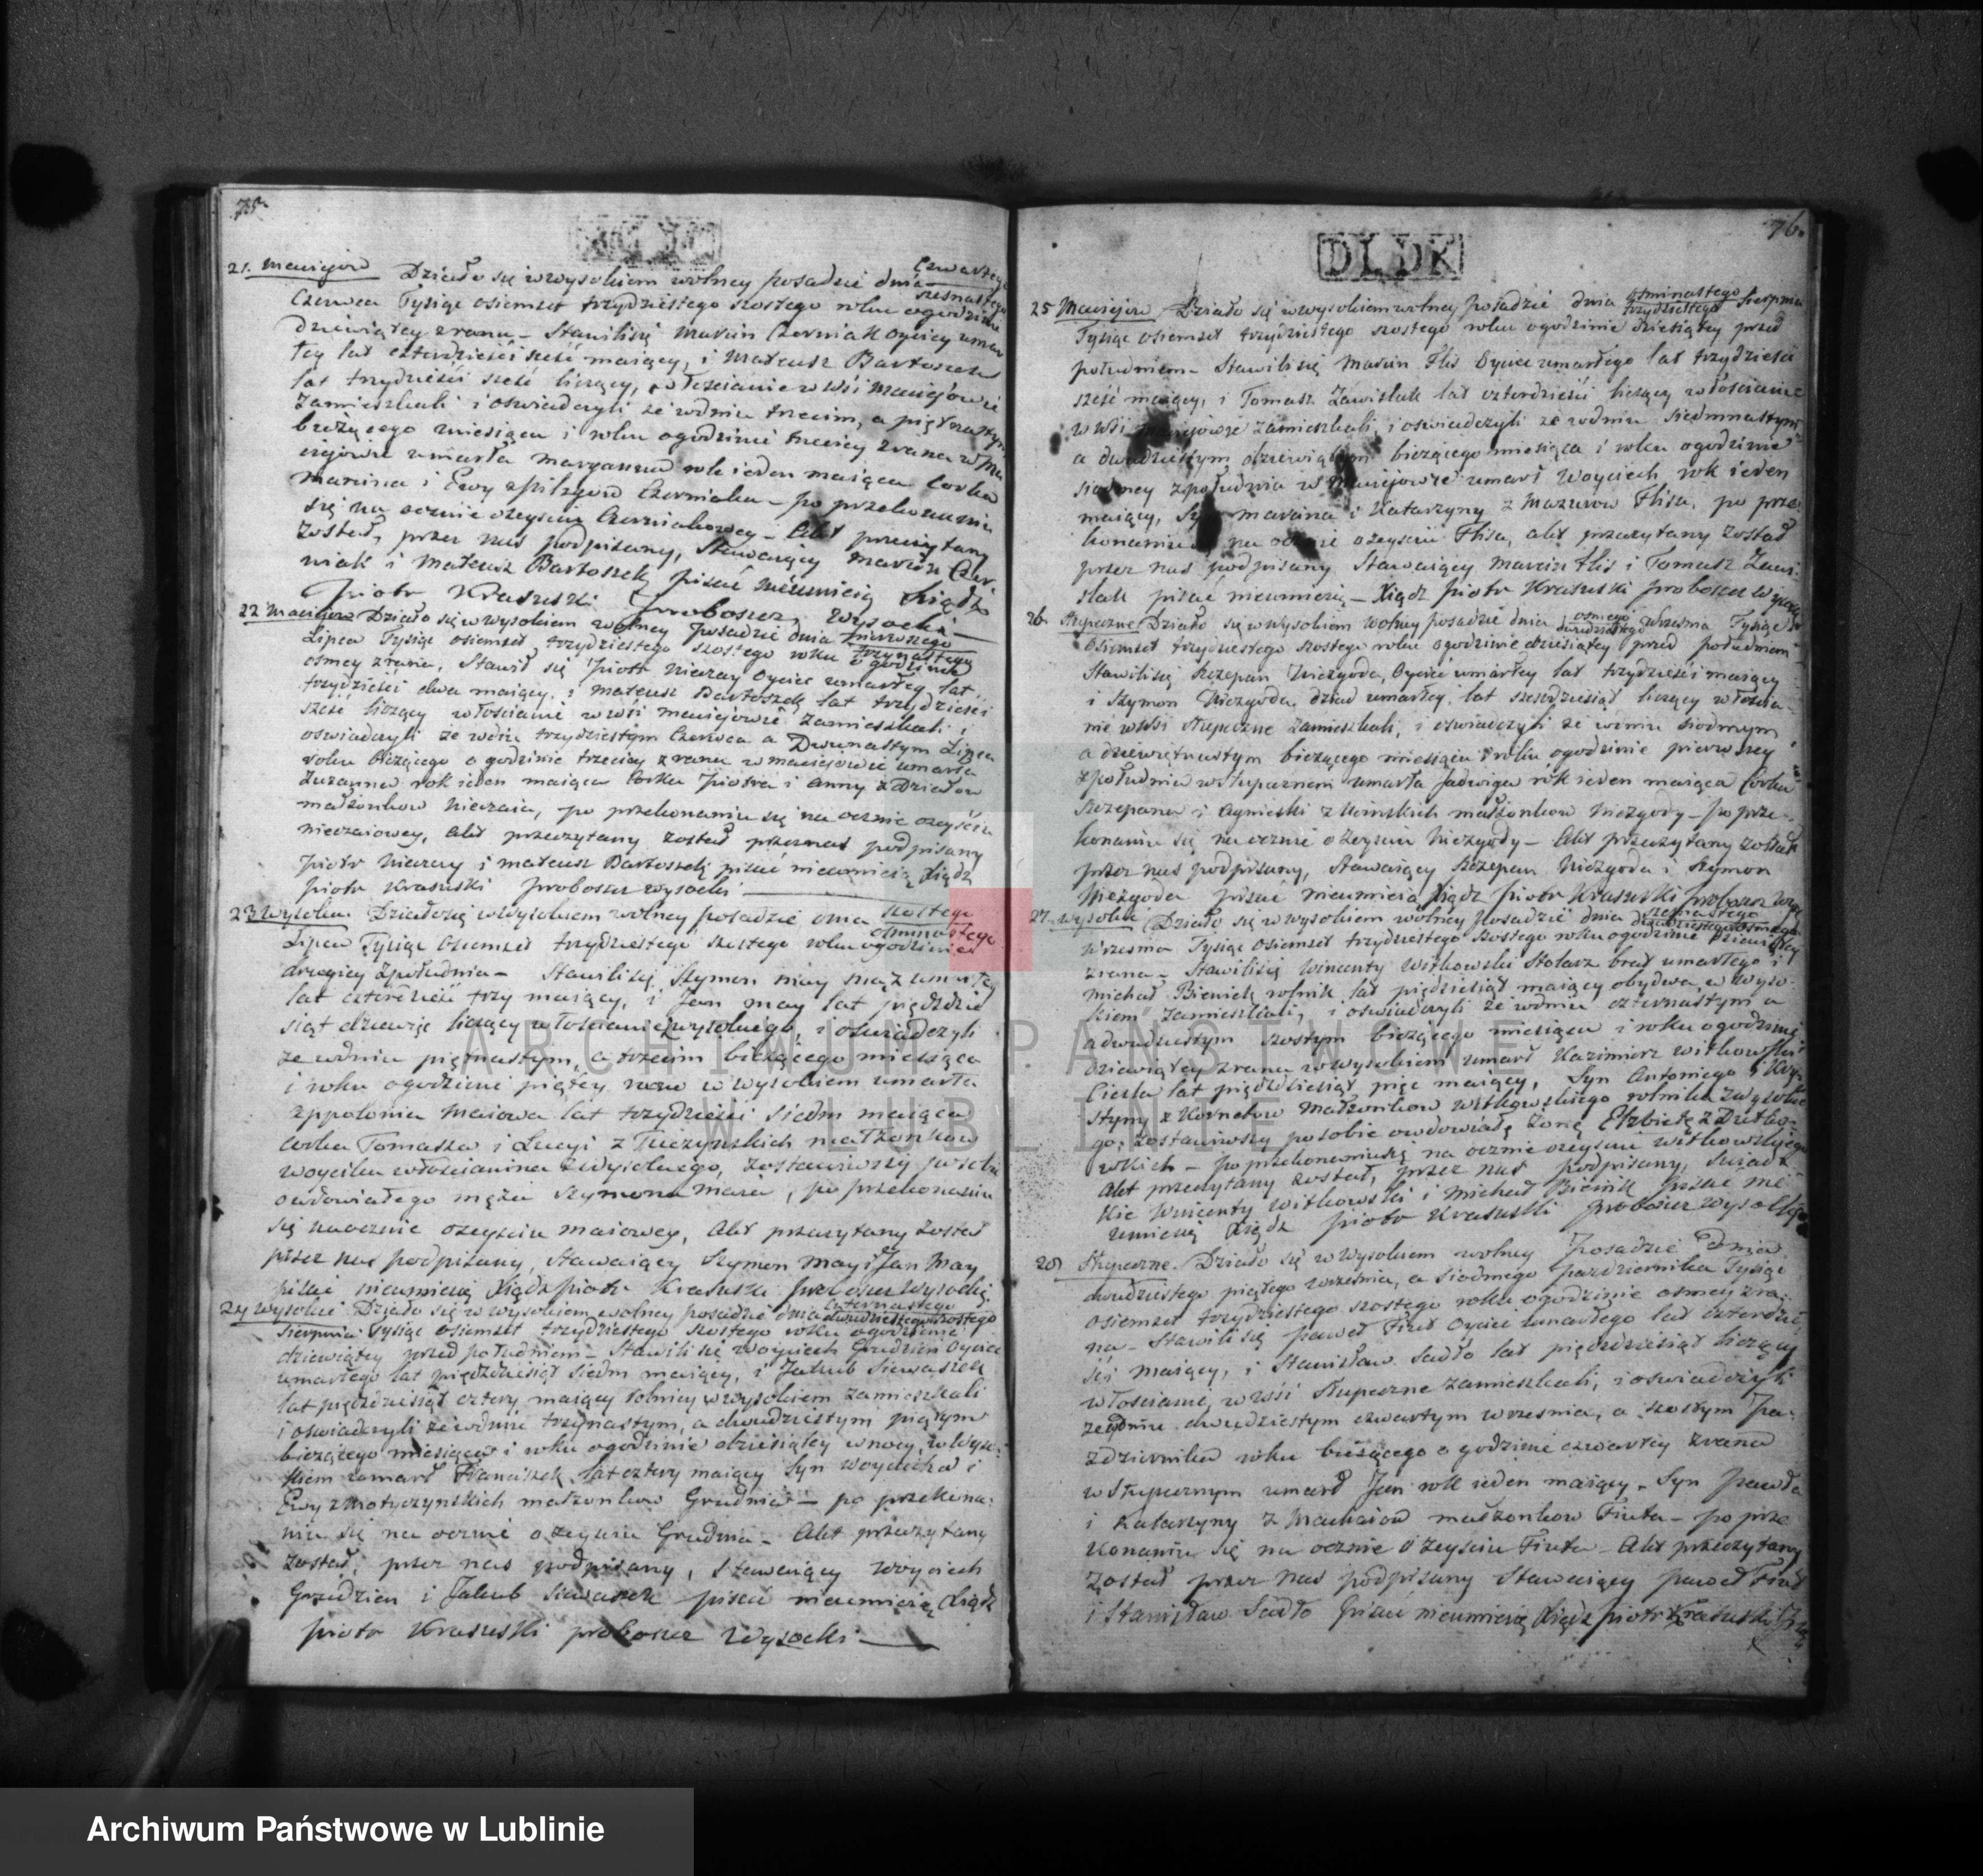 75.
21. Maciejow Działo się w Wysokiem wolney posadzie dnia czwartego
szesnastego
Czerwca Tysiąc osiemset trzydziestego szostego roku o godzinie
dziewiątey z rana – Stawili się Marcin Czerniak Oyciec umar
łey lat czterdzieści sześć maiący, i Mateusz Bartoszek
lat trzydzieści sześć liczący, włościanie w wsi Maciejowie
zamieszkali i oswiadczyli że w dniu trzecim, a piętnastym
bieżącego miesiąca i roku o godzinie trzeciey z rana w Ma
ciejowie umarła Maryanna rok ieden maiąca Corka
Marcina i Ewy Czerniaka – po przekonaniu
się na ocznie o zeyściu Czerniakowey – Akt przeczytany
został, przez nas podpisany, Stawaiący Marcin Czer
niak i Mateusz Bartoszek pisać nieumieią Xiądz
Piotr Krasuski proboszcz Wysocki –
22 Maciejow Działo się w Wysokiem wolney posadzie dnia pierwszego
trzynastego
Lipca Tysiąc osiemset trzydziestego szostego roku o godzinie
osmey z rana, Stawił się Piotr Oyciec umarłey lat
trzydzieści dwa maiący, i Mateusz Bartoszek lat trzydzieści
sześć liczący włościanie w wsi Maciejowie zamieszkali i
oswiadczyli że w dniu trzydziestym Czerwca a Dwunastym Lipca
roku bieżącego o godzinie trzeciey z rana w Maciejowie umarła
Zuzanna rok ieden maiąca Corka Piotra i Anny z Działow
małżonkow, po przekonaniu się na ocznie o zeyściu
Akt przeczytany został przez nas podpisany
Piotr i Mateusz Bartoszek pisać nieumieią Xiądz
Piotr Krasuski proboszcz Wysocki –
23 Wysokie Działo się w Wysokiem wolney posadzie dnia szostego
osmnastego
Lipca Tysiąc osiemset trzydziestego szostego roku o godzinie
drugiey z południa – Stawili się Szymon May mąż umarłey
lat czterdzieści trzy maiący, i Jan May lat pięćdzie
siąt dziewięć liczący włościanie z Wysokiego, i oswiadczyli
że w dniu piętnastym, a trzecim bieżącego miesiąca
i roku o godzinie piątey rano w Wysokiem umarła
Appolonia Maiowa lat trzydzieści siedm maiąca
Corka Tomasza i Łucyi z Tuczynskich małżonkow
włościanina z Wysokiego, zostawiwszy po sobie
owdowiałego męża Szymona Maia, po przekonaniu
się na ocznie o zeyściu Maiowey, Akt przeczytany został
przez nas podpisany, Stawaiący Szymon May i Jan May
pisać nieumieią Xiądz Piotr Krasuski proboszcz Wysocki
24 Wysokie Działo się w Wysokiem wolney posadzie dnia czternastego
dwudziestego szostego
Sierpnia Tysiąc osiemset trzydziestego szostego roku o godzinie
dziewiątey przed południem – Stawili się Woyciech Grudzien Oyciec
umarłego lat pięćdziesiąt siedm maiący, i Jakub Siewaszek
lat pięćdziesiąt cztery maiący rolnicy w Wysokiem zamieszkali
i oswiadczyli że w dniu trzynastym, a dwudziestym piątym
bieżącego miesiąca i roku o godzinie dziesiątey w nocy, w Wyso-
kiem umarł Franciszek lat cztery maiący Syn Woyciecha i
Ewy z Motyczynskich małżonkow Grudnia – po przekona-
niu się na ocznie o zeyściu Grudnia – Akt przeczytany
został, przez nas podpisany, Stawaiący Woyciech
Grudzien i Jakub Siewaszek pisać nieumieią Xiądz
Piotr Krasuski proboszcz Wysocki –
76.
DLDK
25 Maciejow Działo się w Wysokiem wolney posadzie dnia osmnastego Sierpnia
trzydziestego
Tysiąc osiemset trzydziestego szostego roku o godzinie dziesiątey przed
południem – Stawili się Marcin Flis Oyciec umarłego lat trzydzieści
sześć maiący, i Tomasz Zawislak lat czterdzieści liczący włościanie
w wsi Maciejowie zamieszkali i oswiadczyli że w dniu siedmnastym
a dwudziestym dziewiątym bieżącego miesiąca i roku o godzinie
siodmey z południa w Maciejowie umarł Woyciech rok ieden
maiący, Syn Marcina i Katarzyny z Mazurow Flisa, po prze-
konaniu się na ocznie o zeyściu Flisa, akt przeczytany został
przez nas podpisany Stawaiący Marcin Flis i Tomasz Zawi-
slak pisać nieumieią – Xiądz Piotr Krasuski proboszcz Wysocki
26. Stupeczne Działo się w Wysokiem wolney posadzie dnia osmego Wrzesnia Tysiąc
dwudziestego
Osiemset trzydziestego szostego roku o godzinie dziesiątey przed południem
Stawili się Szczepan Niezgoda, Oyciec umarłey lat trzydzieści maiący
i Szymon Niezgoda dziad umarłey, lat szesćdziesiąt liczący włościa-
nie w wsi Stupeczne zamieszkali, i oswiadczyli że w dniu siodmym
a dziewiętnastym bieżącego miesiąca i roku o godzinie pierwszey
z południa w Stupecznem umarła Jadwiga rok ieden maiąca Corka
Szczepana i Agnieszki z małżonkow Niezgody – po prze-
konaniu się na ocznie o zeyściu Niezgody – Akt przeczytany został
przez nas podpisany, Stawaiący Szczepan Niezgoda i Szymon
Niezgoda pisać nieumieią Xiądz Piotr Krasuski proboszcz Wys
27. Wysokie Działo się w Wysokiem wolney posadzie dnia szesnastego
dwudziestego osmego
Wrzesnia Tysiąc osiemset trzydziestego szostego roku o godzinie
z rana – Stawili się Wincenty Witkowski Stolarz brat umarłego i
Michał Bieniek rolnik lat pięćdziesiąt maiący obydwa w Wyso-
kiem zamieszkali, i oswiadczyli że w dniu czternastym a
dwudziestym szostym bieżącego miesiąca i roku o godzinie
dziewiątey z rana w Wysokiem umarł Kazimierz Witkowski
Ciesla lat pięćdziesiąt pięć maiący, Syn Antoniego i Kry-
styny z Kornetow małżonkow Witkowskiego rolnika z Wysokie-
go; zostawiwszy po sobie owdowiałą żonę Elzbietę z Dutko-
wskich – po przekonaniu się na ocznie o zeyściu Witkowskiego
Akt przeczytany został, przez nas podpisany, Swiad-
kie Wincenty Witkowski i Michał Bieniek pisać nie
umieią Xiądz Piotr Krasuski proboszcz Wysocki
28 Stupeczne. Działo się w Wysokiem wolney Posadzie dnia
dwudziestego piątego wrzesnia, a siodmego pazdziernika Tysiąc
osiemset trzydziestego szostego roku o godzinie osmey z ra-
na – Stawili się Paweł Fiut Oyciec umarłego lat czterdzie-
ści maiący, i Stanisław Sadło lat pięćdziesiąt liczący
włościanie w wsi Stupeczne zamieszkali, i oswiadczyli
że w dniu dwudziestym czwartym wrzesnia, a szostym Pa-
zdziernika roku bieżącego o godzinie czwartey z rana
w Stupecznym umarł Jan rok ieden maiący, Syn Pawła
i Katarzyny z Machaiow małżonkow Fiuta – po prze
konaniu się na ocznie o zeyściu Fiuta – Akt przeczytany
został przez nas podpisany Stawaiący Paweł Fiut
i Stanisław Sadło pisać nieumieią Xiądz Piotr Krasuski
ARCHIWUM PAŃSTWOWE
W LUBLINIE
Archiwum Państwowe w Lublinie